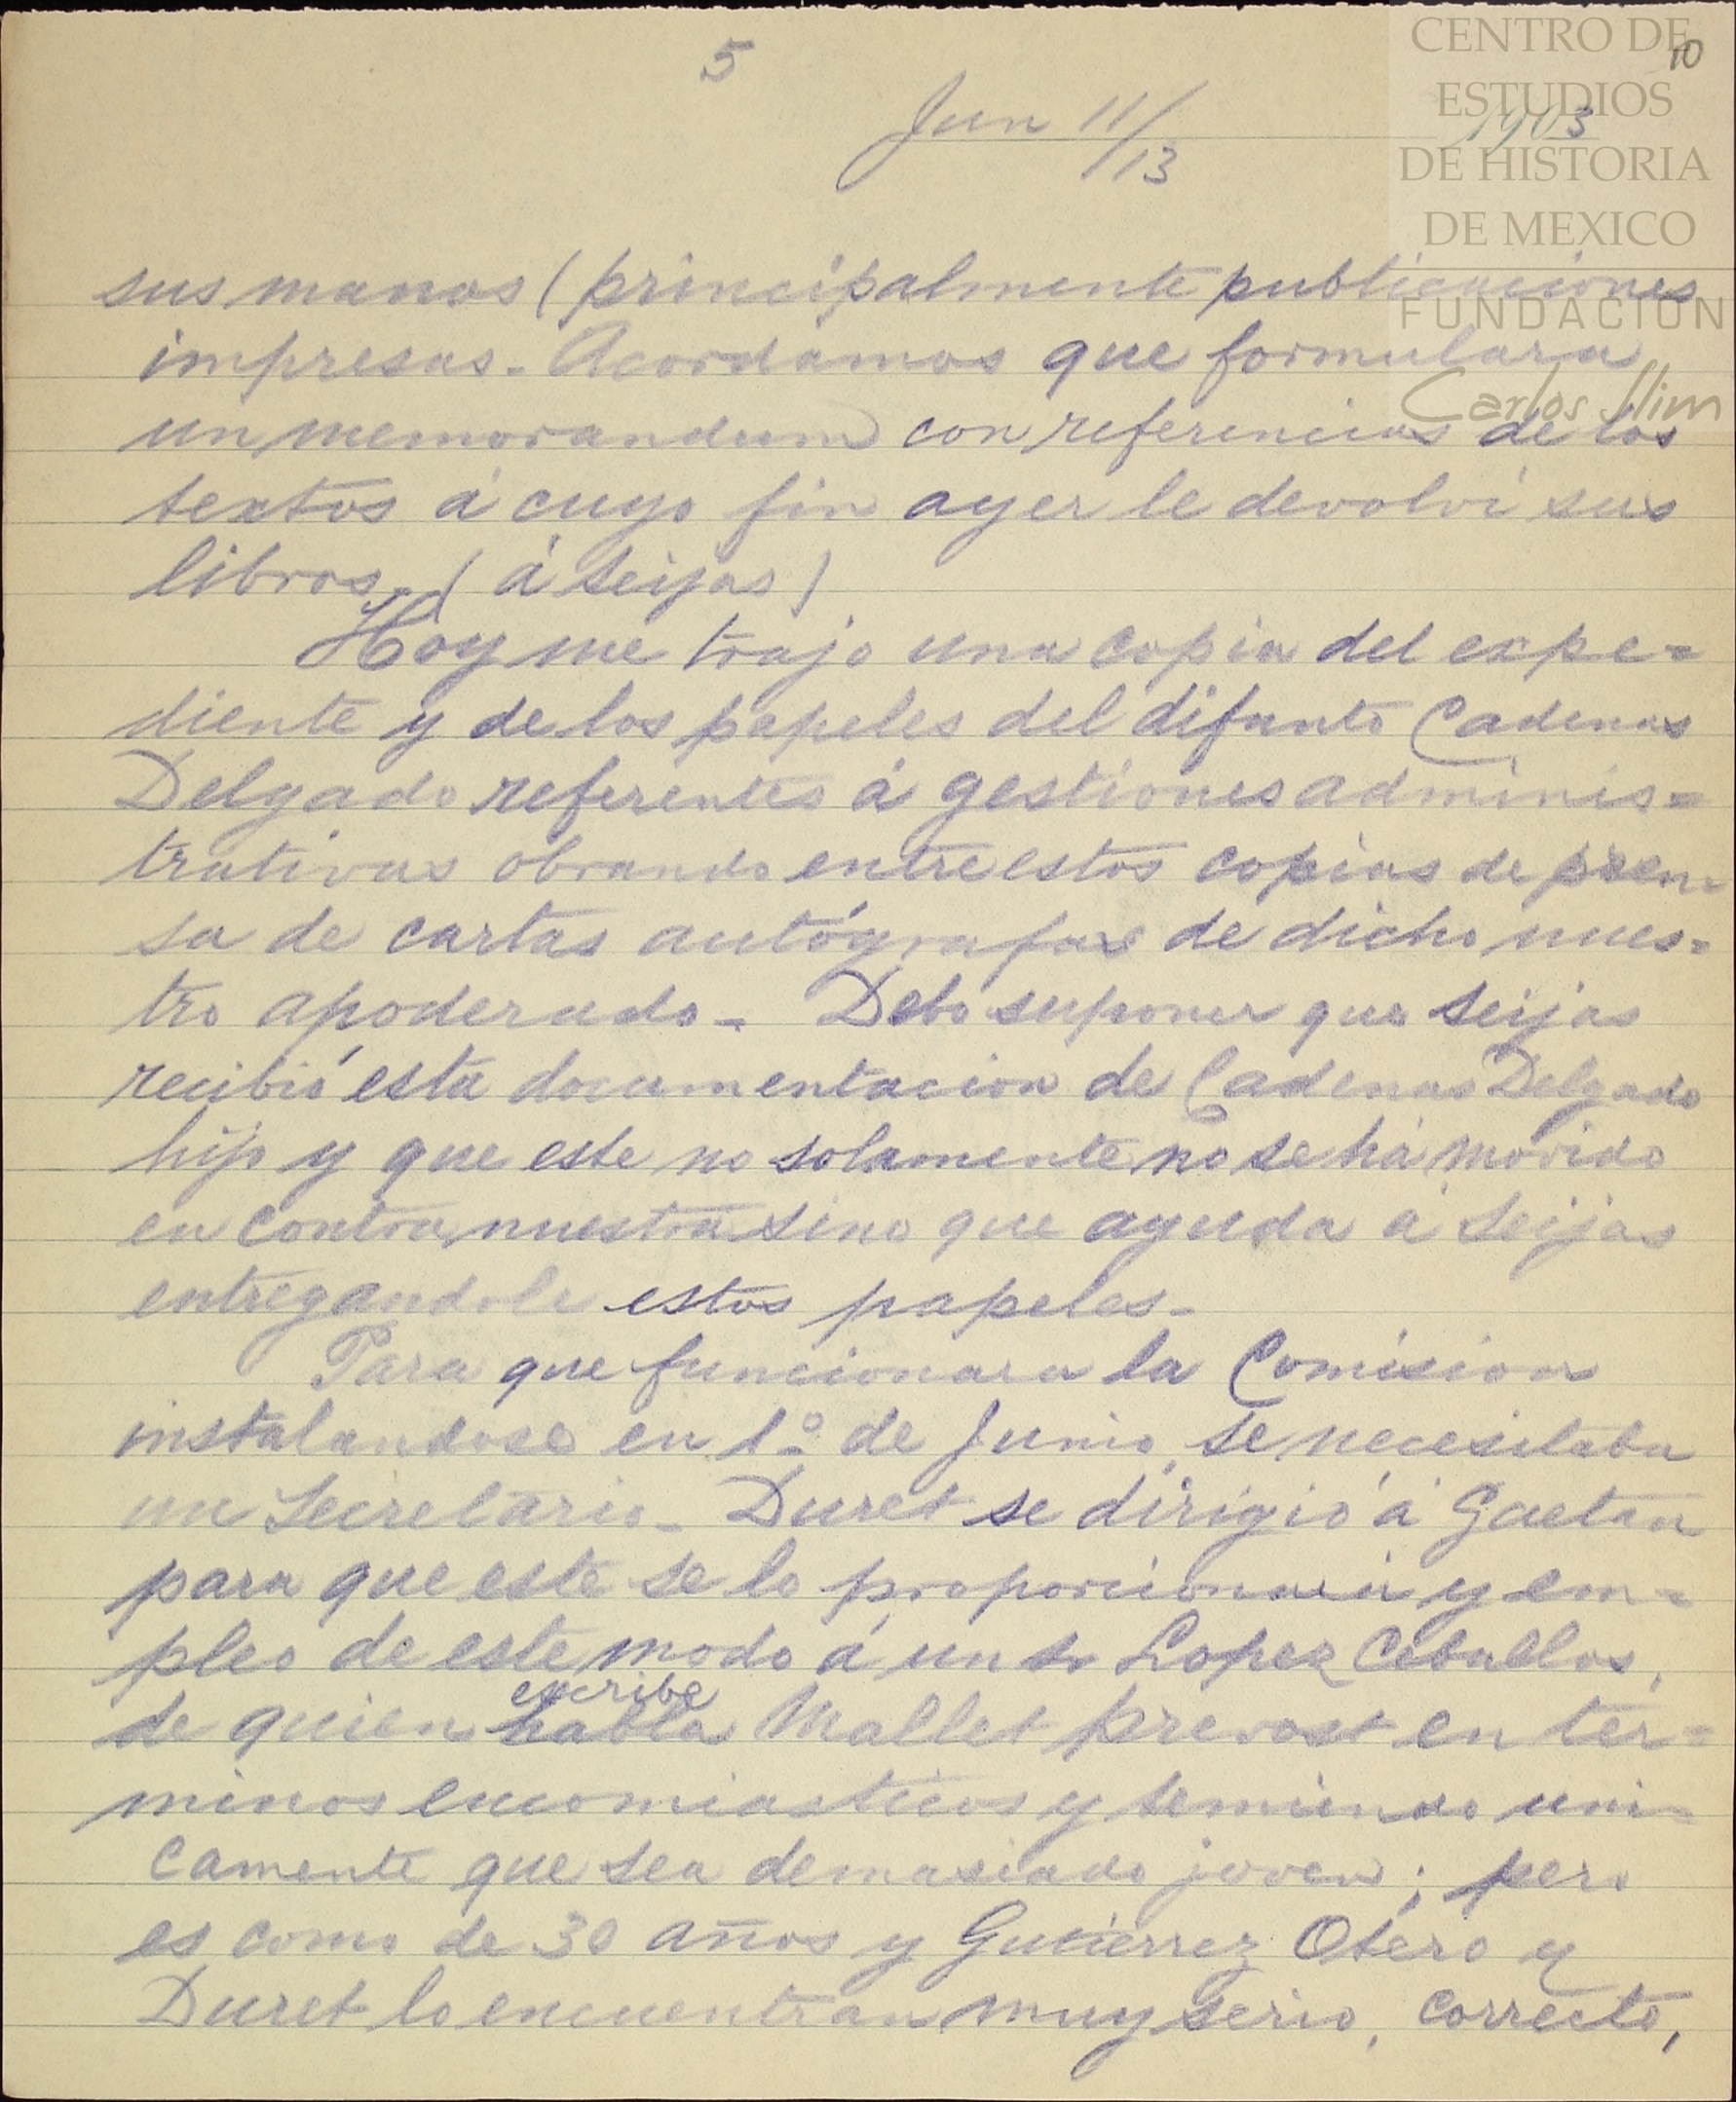 5
10
Jun 11/13
1903
CENTRO DE
ESTUDIOS
DE HISTORIA
DE MEXICO
FUNDACIÓN
Carlos Slim
sus manos (principalmente publicaciones
impresas. Acordamos que formulara
un memorandum con referencias de los
textos á cuyo fin ayer le devolví sus
libros. (á Seijas)
Hoy me trajo una copia del expe=
diente y de los papeles del difunto Cadenas
Delgado referentes á gestiones adminis=
trativas obrando entre estos copias de pren=
sa de cartas autógrafas de dicho nues=
tro apoderado - Debo suponer que Seijas
recibió esta documentacion de Cadenas Delgado
hijo y que este no solamente no se há movido
en contra nuestra sino que ayuda á Seijas
entregandole estos papeles -
Para que funcionara la Comision
instalandose en 1º de Junio, se necesitaba
un Secretario - Duret se dirigió á Gaetan
para que este se lo proporcionara y em=
pleo de este modo á un Sr Lopez Ceballos,
escribe
de quien habla Mallet Prevost en ter=
minos encomiasticos y temiendo uni=
camente que sea demasiado joven; pero
es como de 30 años y Gutierrez Otero y
Duret lo encuentran muy serio, correcto,